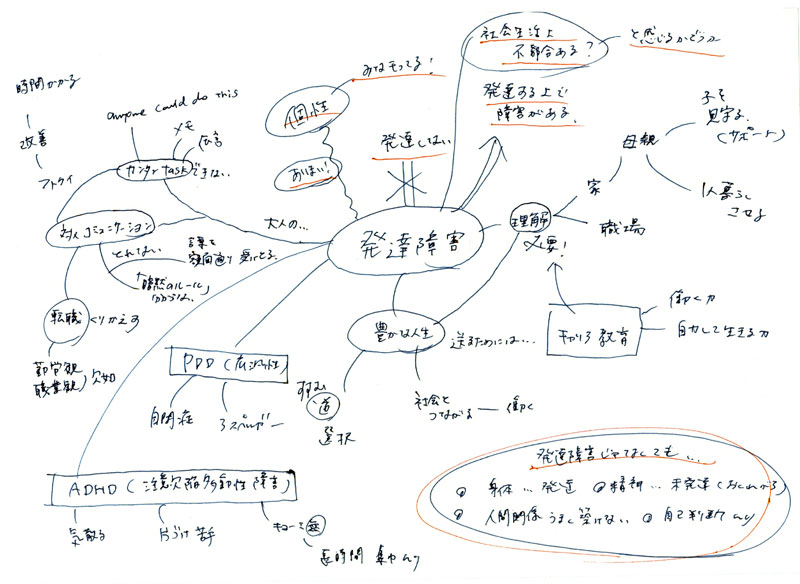 社会生活上
不都合ある?
と感じるかどうか
みなもってる!
個性
発達する上で
障害がある。
発達しない
あいまい!
時間かかる
改善
anyone could do this
メモ
伝言
カンタン task できない
対人コミュニケーション
とれない
言葉を
額面通り 受けとる。
「暗黙のルール」
わからない
大人の...
発達障害
理解
必要!
家
職場
母親
子を
見守る。
(サポート)
1人暮らし
させる
転職
くりかえす
勤労観
職業観
欠如
PDD (広汎性)
自閉症
アスペルガー
豊かな人生
送るためには...
すすむ
道
選択
社会と
つながる
働く
教育
働く力
自立して生きる力
ADHD (注意欠陥多動性障害)
気散る
片づけ苦手
長時間 集中
発達障害じゃなくても...
身体...発達
精神...未発達
人間関係 うまく築けない
自己判断